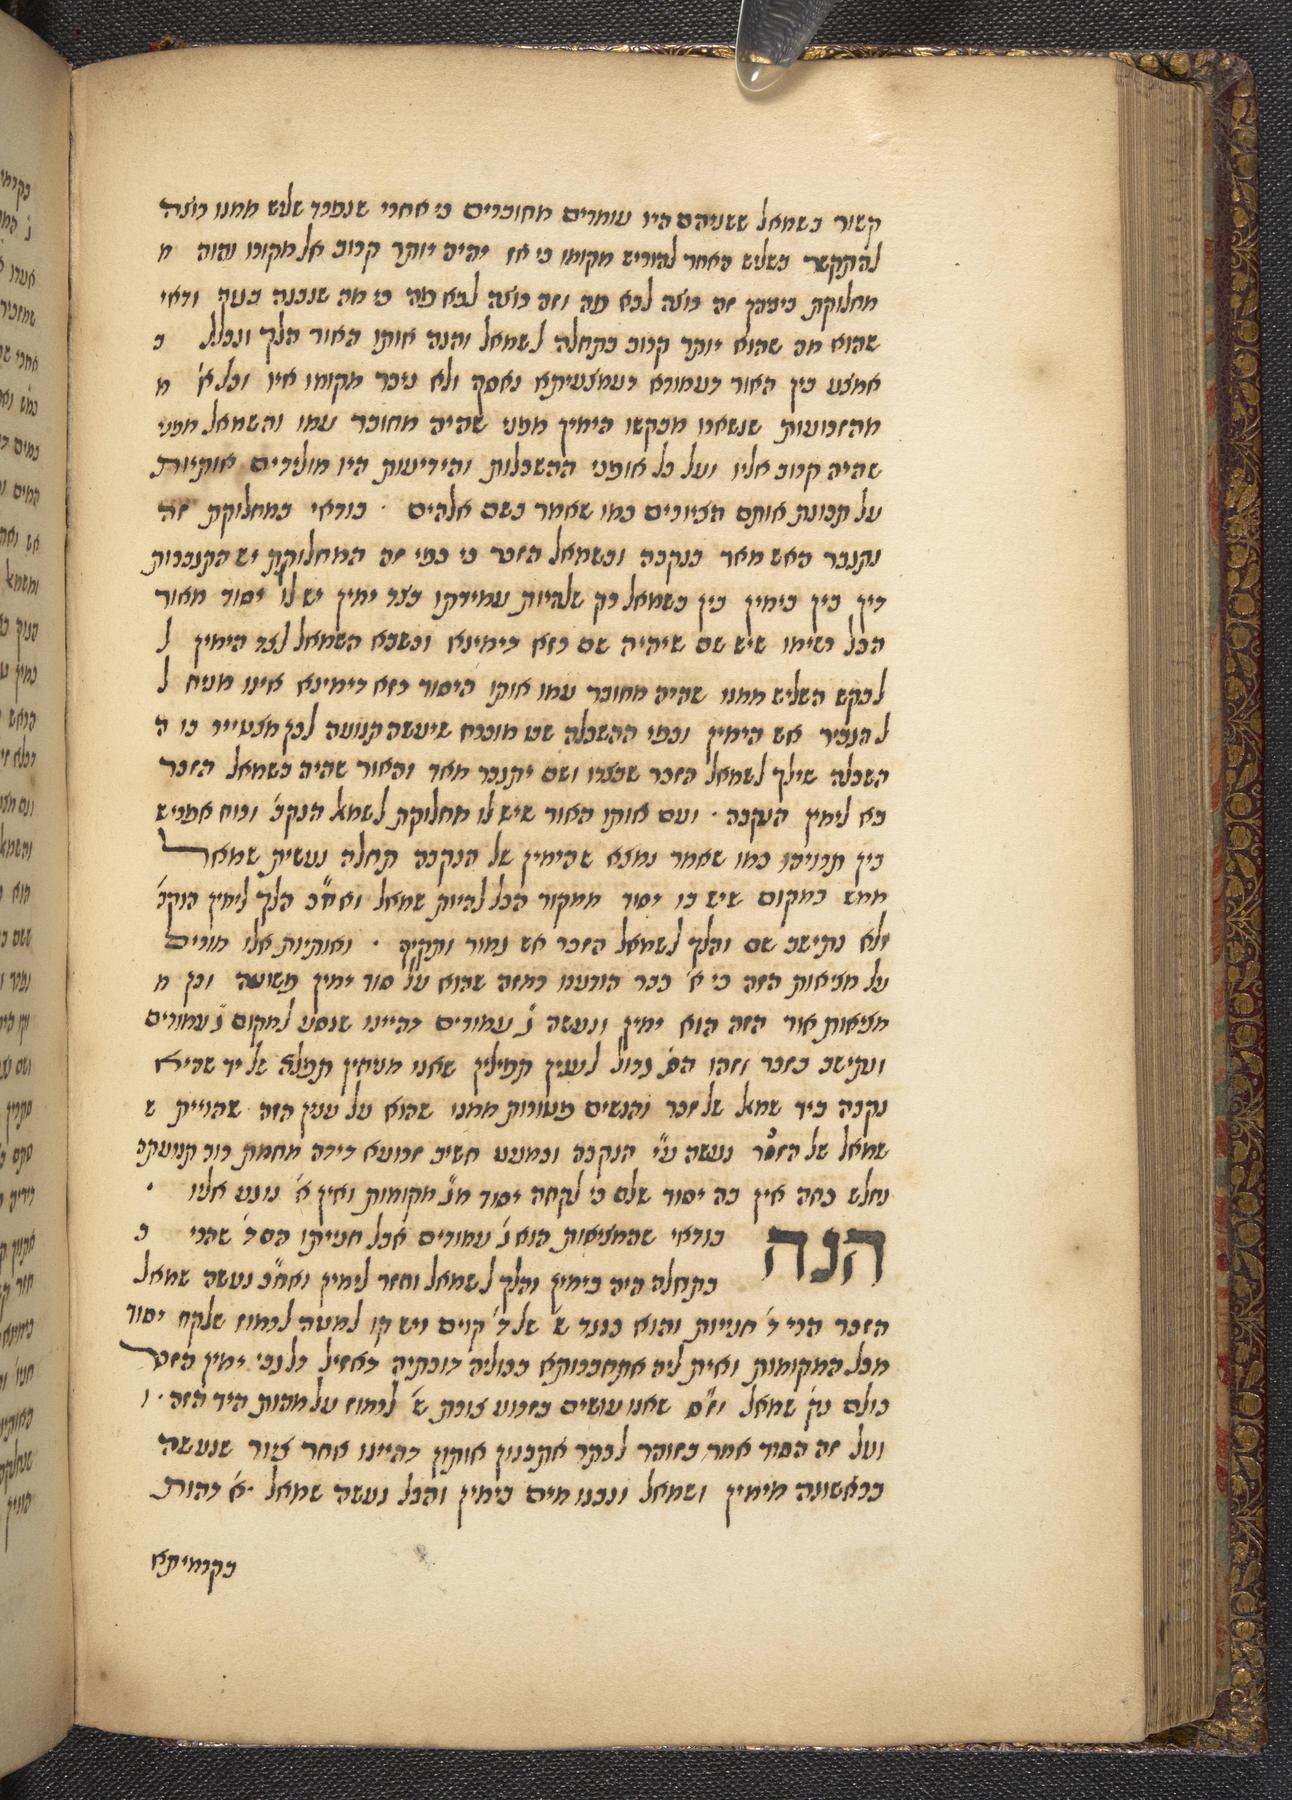 קשור בשמאל ששניהם היו עומדים מחוברים כי אחרי שנפרד שליש ממנו רוצה
להתקשר בשליש האחר להוריש מקומו כי אז יהיה יותר קרוב אל מקורו והוה מ
מחלוקת ביניהן זה רוצה לבא פה וזה רוצה לבא פה כי מה שנכנה בגוף ודאי
שהוא מה שהוא יותר קרוב בתחלה לשמאל והנה אותו האור הלך ונכלל כ
אמצע בין האור דעמודא דאמצעיתא נאסף ולא ניכר מקומו איו וכל א' מ
מהזרועות שנשארו מבקשו הימין מפני שהיה מחובר עמו והשמאל מפני
שהיה קרוב אליו ועל כל אופני ההשכלות והידיעות היו מולידים אותיות
על תכונת אותם הציורים כמו שאמר בשם אלהים · בודאי במחלוקת זה
נתגבר האש מאד בנקבה ובשמאל הזכר כי כפי זה המחלוקת יש התגברות
דין בין בימין בין בשמאל רק שלהיות עמידתו בצד ימין יש לו יסוד מאור
הכל רשימו שיש שם שיהיה שם רזא דימינא וכשבא השמאל לצד הימין ל
לבקש השליש ממנו שהיה מחובר עמו אותו היסוד רזא דימינא אינו מניח ל
להגביר אש הימין וכפי ההשכלה שם מוכרח שיעשה תנועה לכן מצטייר בו ה
השכלה שילך לשמאל הזכר שכצדו ושם יתגבר מאד והאור שהיה בשמאל הזכר
בא לימין הנקבה · ועם אותו האור שיש לו מחלוקת לשמאל הנקב' ורוח אפריש
בין תרוייהו כמו שאמר נמצא שהימין של הנקבה תחלה נעשית שמאל
ממש במקום שיש בו יסוד ממקור הכל להיות שמאל ואח"כ הלך לימין הנקב'
ולא נתישב שם והלך לשמאל הזכר אש גמור ותקיף · ואותיות אלו מורים
על מציאות הזה כי א' כבר הודענו רמזה שהוא על סוד ימין פשוטה וכן מ
מציאות אור הזה הוא ימין ונעשה ג' עמודים דהיינו שנסע למקום ג' עמודים
ונתישב בזכר וזהו הס' גדול לענין תפילין שאנו מניחין תפלה של יד שהיא
נקבה ביד שמאל של זכר והנשים פטורות ממנו שהוא על ענין הזה שהויית ש
שמאל של הזכר נעשה ע"י הנקבה וכמעט חשיב זרועא דידה מחמת רוב תנועתה
נחלש כחה אין בה יסוד שלם כי לקחה יסוד מג' מקומות ואין א' נוגע אליו ·
הנה בודאי שהמציאות הוא ג' עמודים אבל חנייתו הם ד' שהרי כ
בתחלה היה בימין והלך לשמאל וחזר לימין ואח"כ נעשה שמאל
הזכר הרי ד' חניות והוא כנגד ש' של ד' קוים ויש קו למטה לרמוז שלקח יסוד
מכל המקומות ואית ליה אתחברותא בכוליה דוכתיה דאזיל כל גבי ימין הזכר
כולם נק' שמאל וז"ס שאנו עושים בזרוע צורת ש' לרמוז על מהות היד הזה · ו
ועל זה הסוד אמר בזוהר לבתר אתכנון אותון דהיינו אחר ציור שנעשה
בראשונה מימין ושמאל ונכנו מים בימין והכל נעשה שמאל · א' להות
בקדמיתא